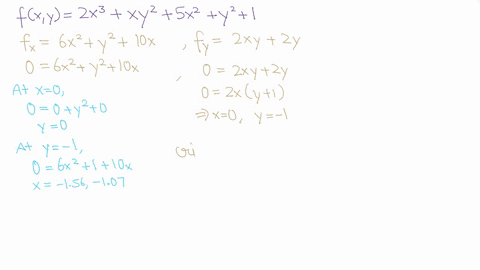 f(x,y) = 2x³ + xy² + 5x² + y² + 1
fx = 6x² + y² + 10x , fy = 2xy + 2y
0 = 6x² + y² + 10x , 0 = 2xy + 2y
0 = 2x(y+1)
⇒ x=0, y=-1
At x=0,
0 = 0 + y² + 0
y = 0
At y=-1,
0 = 6x² + 1 + 10x
x = -1.56, -1.07
cri